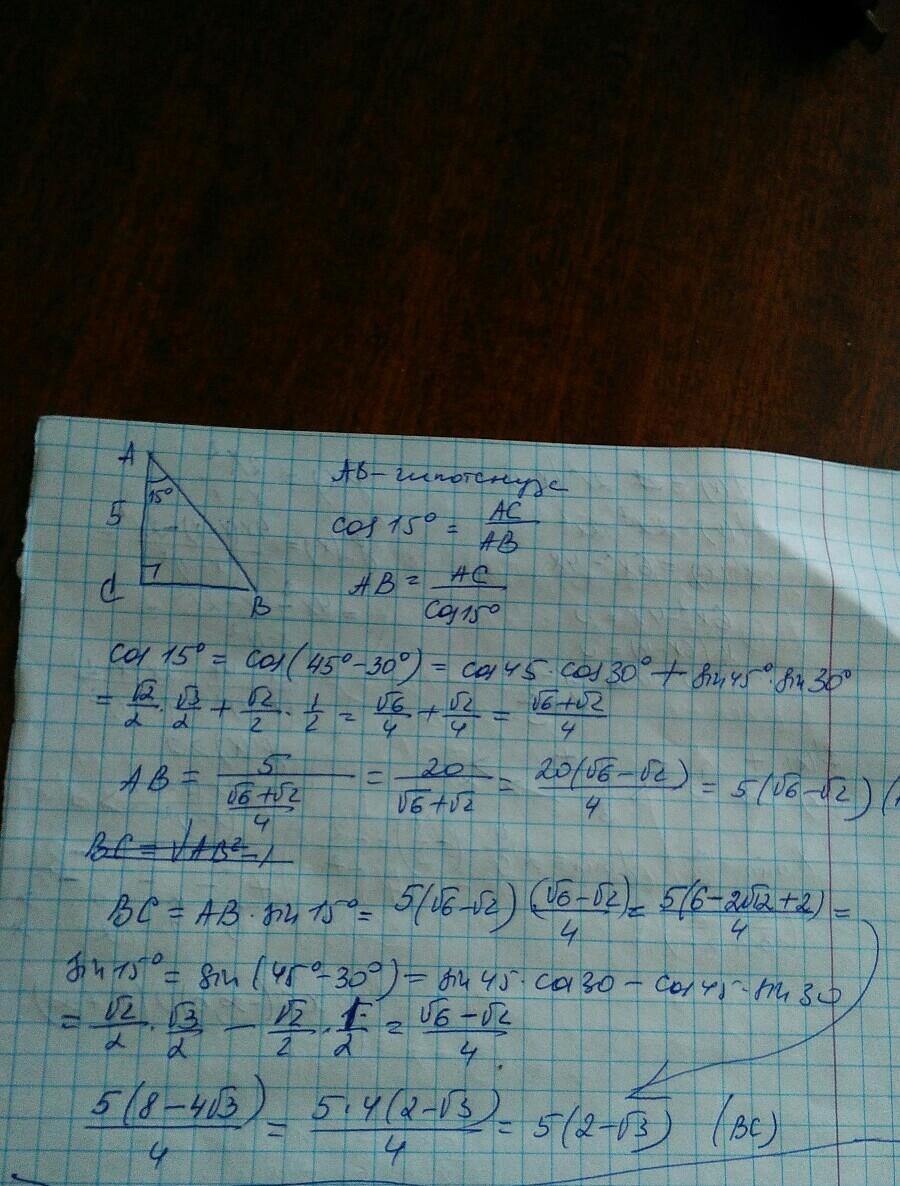 A
15°
5
C
B
AB - гипотенуза
cos 15° = AC/AB
AB = AC/cos 15°
cos 15° = cos(45° - 30°) = cos 45 · cos 30° + sin 45° · sin 30°
= √2/2 · √3/2 + √2/2 · 1/2 = √6/4 + √2/4 = (√6+√2)/4
AB = 5/((√6+√2)/4) = 20/(√6+√2) = 20(√6-√2)/4 = 5(√6-√2) (
BC = √AB² -
BC = AB · sin 15° = 5(√6-√2) (√6-√2)/4 = 5(6-2√12+2)/4 =
sin 15° = sin(45° - 30°) = sin 45 · cos 30 - cos 45 · sin 30
= √2/2 · √3/2 - √2/2 · 1/2 = (√6-√2)/4
5(8-4√3)/4 = 5·4(2-√3)/4 = 5(2-√3) (BC)